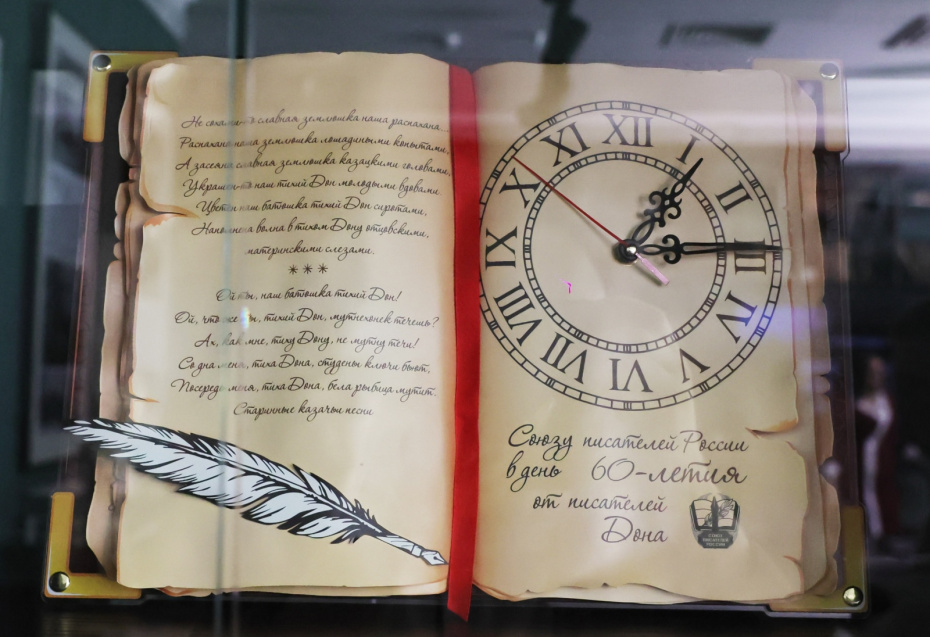 Не сохами-то славная землюшка наша распахана...
Распахана наша землюшка лошадиными копытами,
А засеяна славная землюшка казацкими головами,
Украшен-то наш тихий Дон молодыми вдовами
Цветен наш батюшка тихий Дон сиротами,
Наполнена волна в тихом Дону отцовскими,
материнскими слезами.
***
Ой ты, наш батюшка тихий Дон!
Ой, что же ты, тихий Дон, мутнехонек течешь?
Ах, как мне, тиху Дону, не мутну течи!
Со дна меня, тиха Дона, студены ключи бьют,
Посередь меня, тиха Дона, бела рыбица мутит.
Старинные казачьи песни
XII
I
II
III
IV
V
VI
VII
VIII
IX
X
XI
Союзу писателей России
в день 60-летия
от писателей
Дона
СОЮЗ
ПИСАТЕЛЕЙ
РОССИИ